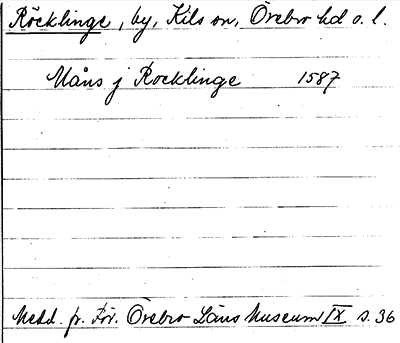 Röcklinge, by, Kils sn, Örebro hd o. l.
Måns j Rocklinge 1587
Medd. fr. För. Örebro Läns Museum IX s. 36